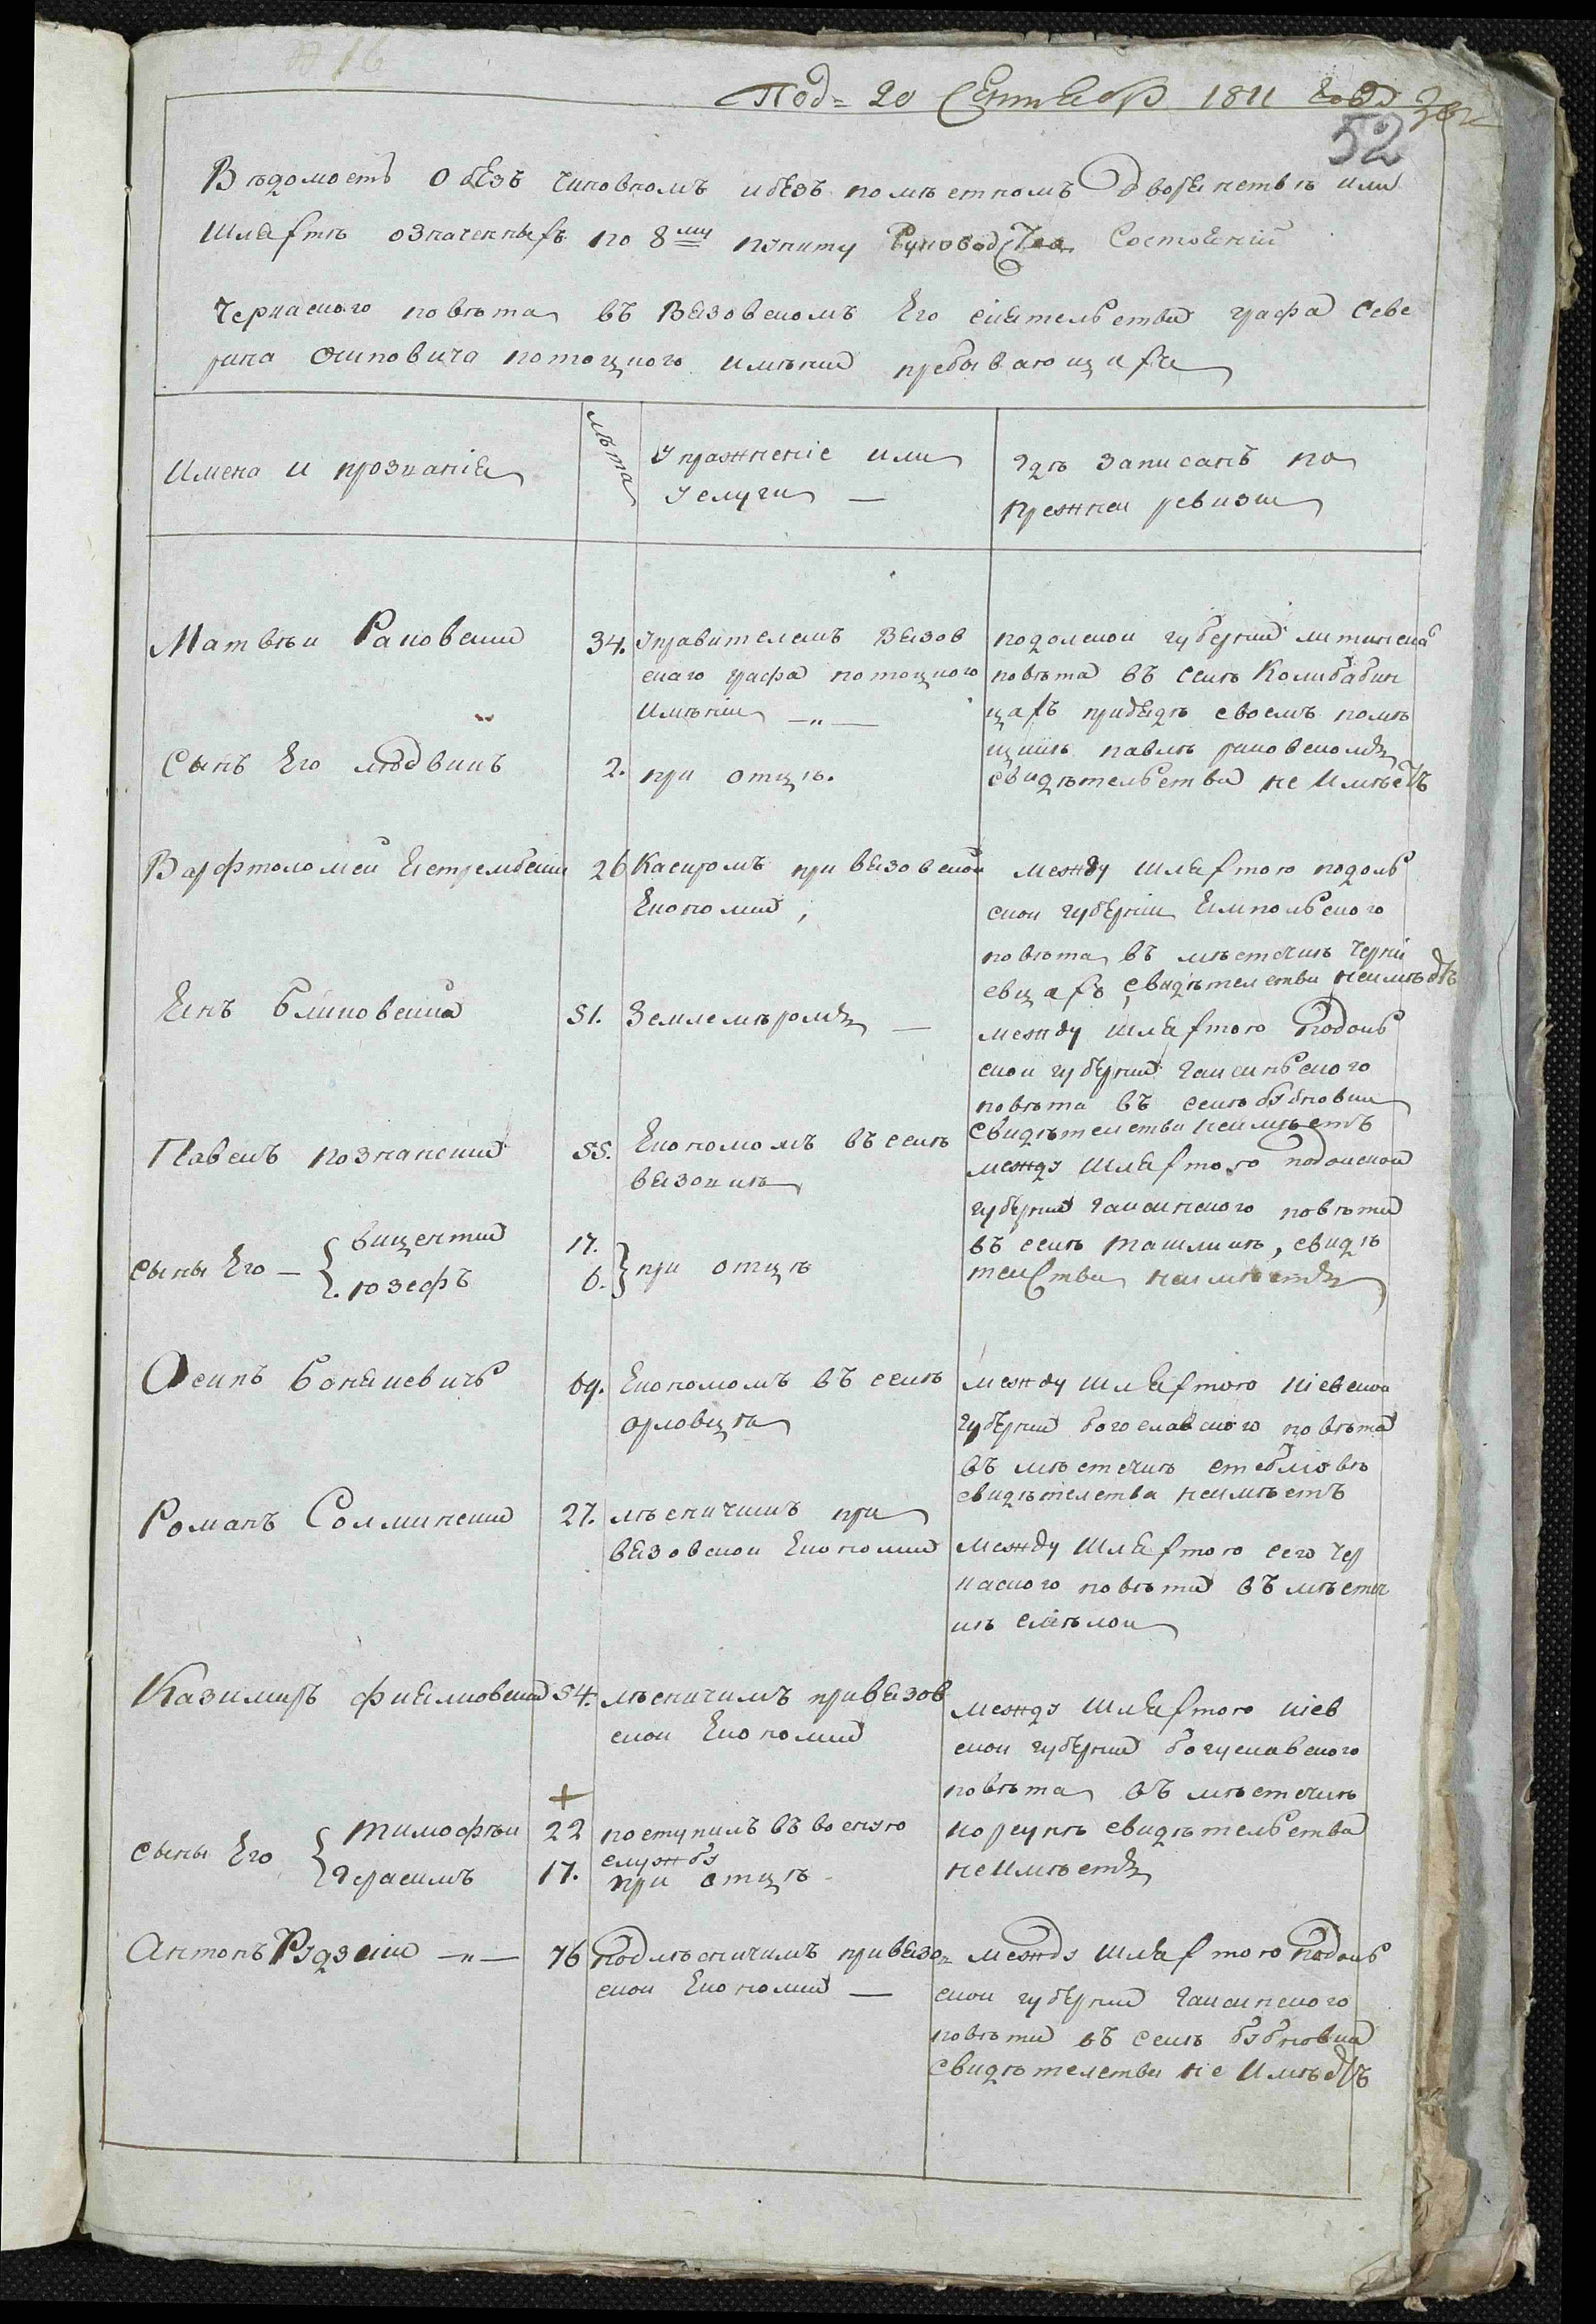 № 16
Под= 20 Сентября 1811 года
52
Вѣдомость о безъ чиновномъ и безъ помѣстномъ дворянствѣ или
Шляхтѣ означенныхъ по 8му пункту Руководства Состояній
Черкаского повѣта въ Вязовскомъ Его сіятельства графа Севе
рина осиповича потоцкого имѣніи пребывающихъ
Имена и прозванія
лѣта
Упражненіе или
Услуги —
гдѣ записанъ по
прежней ревизіи
Матвѣй Раковскій
34.
Управителемъ Вязов
скаго графа потоцкого
Имѣніи —„—
подолской губерніи литинска
повѣта въ селѣ Колибабин
цахъ при дядѣ своемъ помѣ
щикѣ павлѣ раковскомъ
свидѣтельства не имѣетъ
Сынъ Его людвикъ
2.
при отцѣ.
Варфтоломей Ястрембскій
26
Касиромъ при вязовской
Економіи,
между шляхтою подоль
ской губерніи Ямпольского
повѣта въ мѣстечкѣ Черні
евцахъ свидѣтелства неимѣетъ
Янъ блиновскій
51.
Землемѣромъ —
между шляхтою Подоль
ской губерніи гайсиньского
повѣта въ селѣ бубновки
свидѣтелства неимѣетъ
Павелъ познанский
55.
Економомъ въ селѣ
вязовкѣ
между шляхтою подолской
губерніи гайсинского повѣта
въ селѣ ташликѣ, свидѣ
телства неимѣетъ
сыны Его —
вицентий
17.
юзефъ
6.
при отцѣ
Осипъ Банякевичъ
69.
Економомъ въ селѣ
орловцѣ
между шляхтою кіевской
губерніи богославского повѣта
въ мѣстечкѣ стебліовѣ
свидѣтелства неимѣетъ
Романъ Солминский
27.
лѣсничимъ при
вязовской Економіи
между шляхтою сего Чер
каского повѣта въ мѣстеч
кѣ смѣлой
Казимиръ фиялковский
54.
лѣсничимъ при вязов
ской Економіи
между шляхтою кіев
ской губерніи богуславского
повѣта въ мѣстечкѣ
корсунѣ свидѣтельства
не имѣетъ
+
сыны Его
тимофѣй
22
поступилъ въ воєную
службу
герасимъ
17.
при отцѣ
Антонъ Рудзкій —„—
76
Подлѣсничимъ при вязо=
ской Економіи —
между шляхтою Подоль
ской губерніи гайсинского
повѣта въ селѣ бубновки
свидѣтелства не имѣетъ